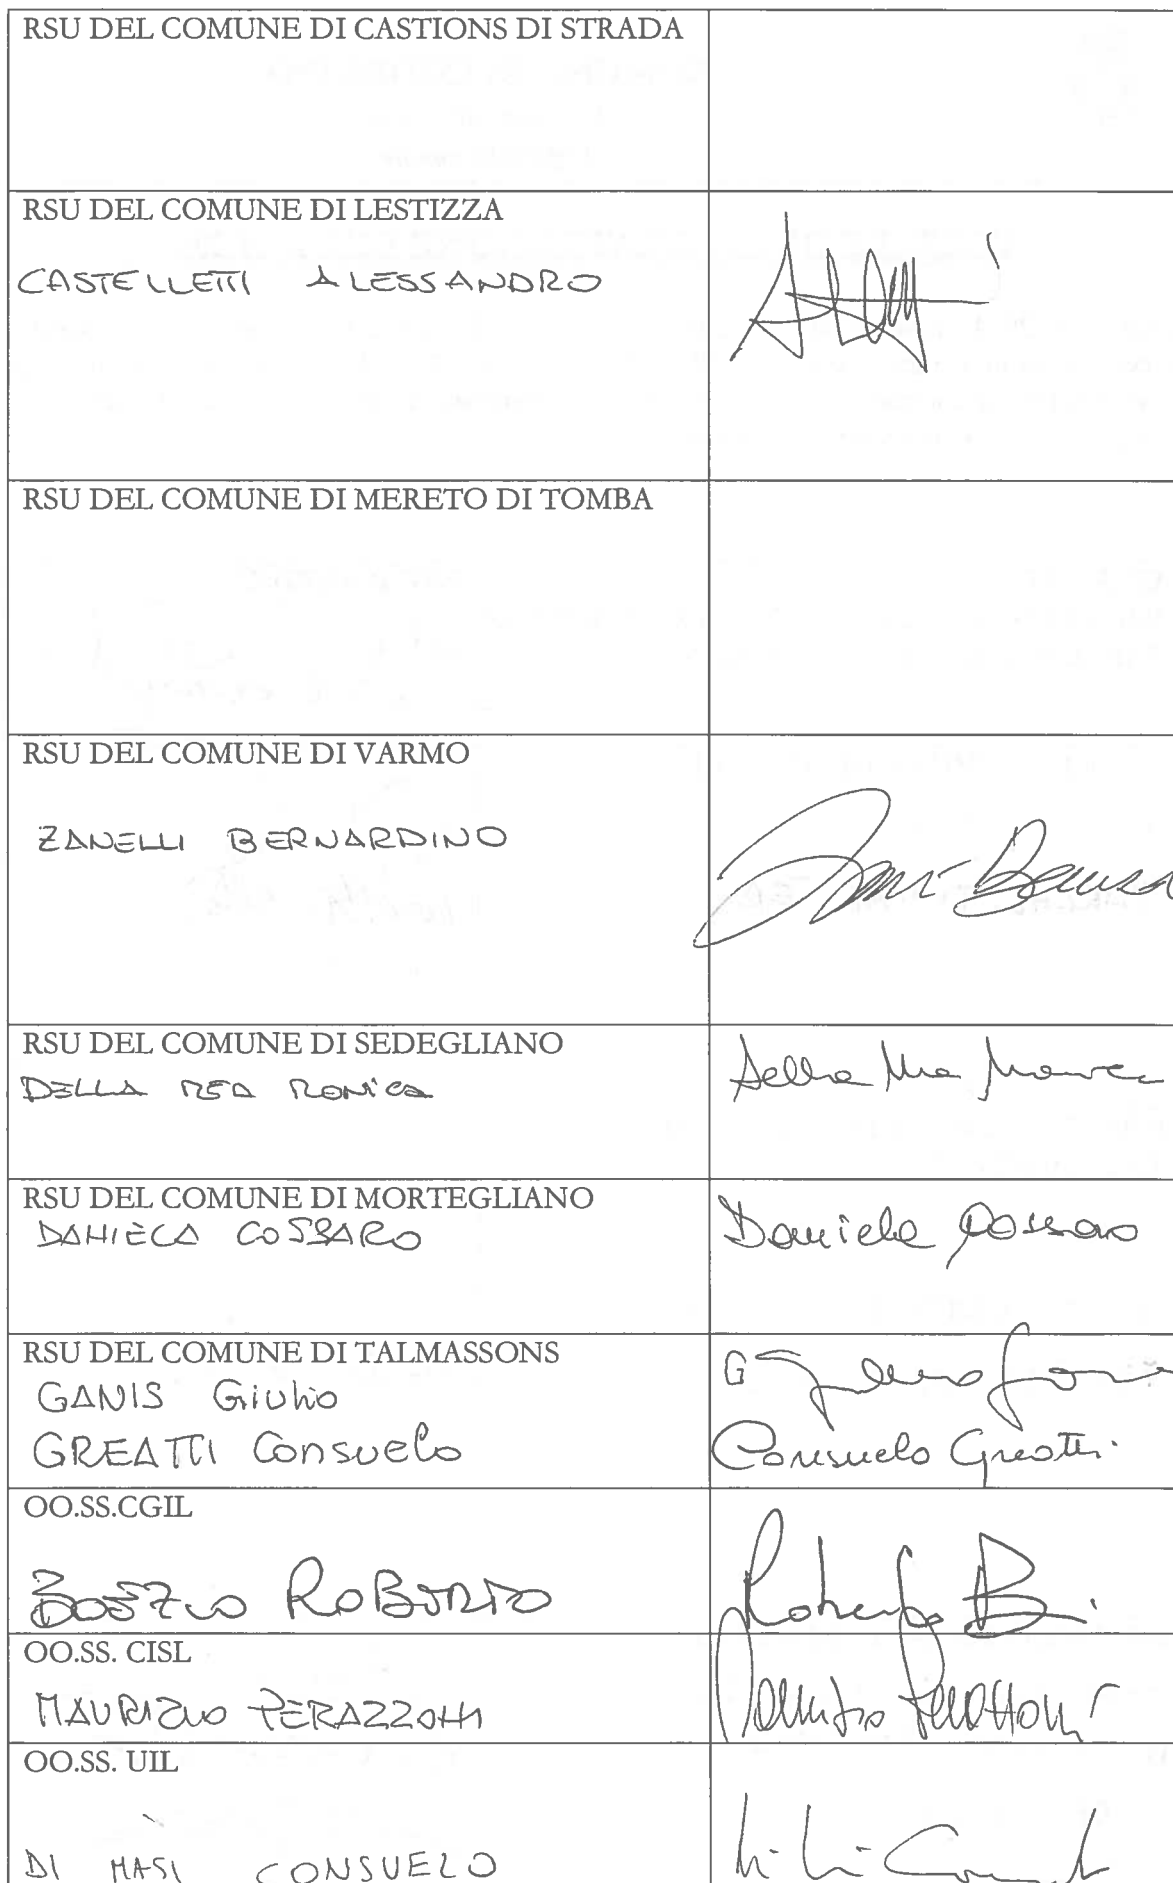 RSU DEL COMUNE DI CASTIONS DI STRADA
RSU DEL COMUNE DI LESTIZZA
CASTELLETTI ALESSANDRO
RSU DEL COMUNE DI MERETO DI TOMBA
RSU DEL COMUNE DI VARMO
ZANELLI BERNARDINO
RSU DEL COMUNE DI SEDEGLIANO
DELLA MEA MONICA
Della Mea Monica
RSU DEL COMUNE DI MORTEGLIANO
DANIELA COSSARO
Daniela Cossaro
RSU DEL COMUNE DI TALMASSONS
GANIS Giulio
GREATTI Consuelo
Consuelo Greatti
OO.SS.CGIL
ROBERTO
Roberto
OO.SS. CISL
MAURIZIO PERAZZONI
OO.SS. UIL
DI MASI CONSUELO